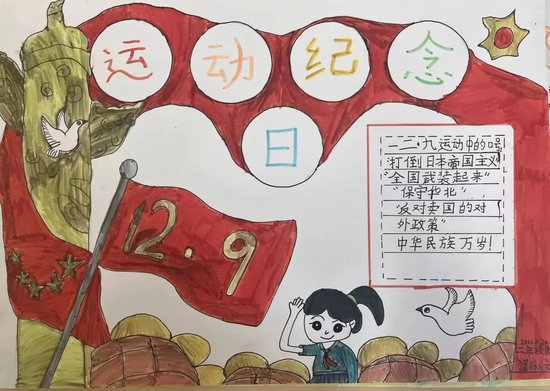 运动纪念
日
12.9
一二·九运动中的口号
"打倒日本帝国主义"
"全国武装起来"
"保守华北"
"反对卖国的对
外政策"
中华民族万岁!